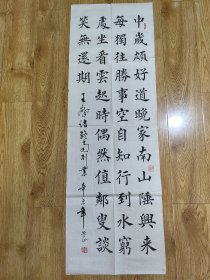 中歲頗好道晚家南山陲興來
每獨往勝事空自知行到水窮
處坐看雲起時偶然值鄰叟談
笑無還期
王維詩終南別業